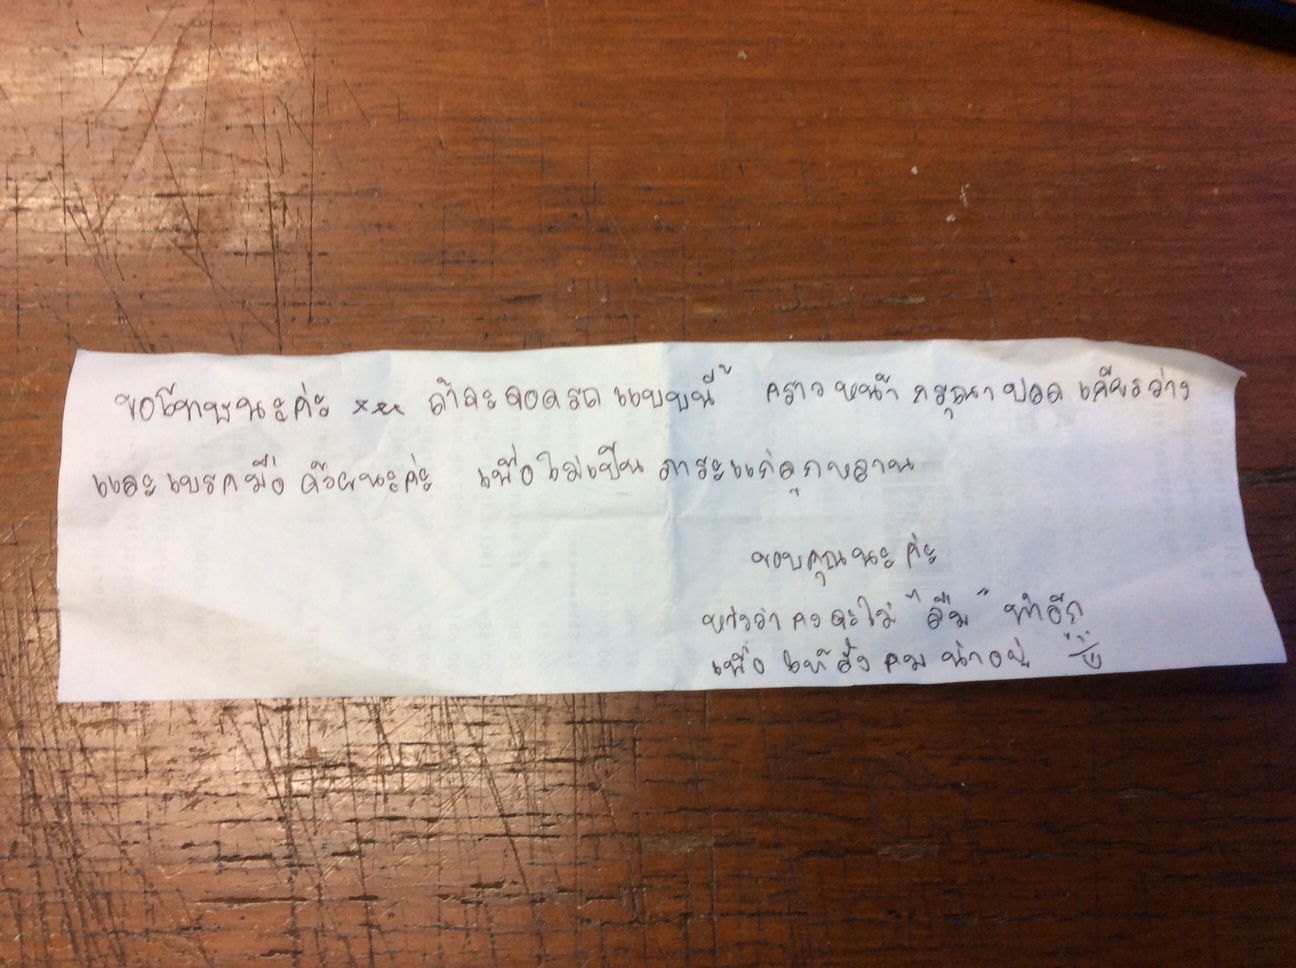 ขอโทษนะค่ะ xxx ถ้าจะจอดรถแบบนี้ คราวหน้า กรุณาปลดเกียร์ว่าง
และเบรคมือด้วยนะค่ะ เพื่อไม่เป็นภาระแก่ลูกหลาน
ขอบคุณนะค่ะ
หวังว่าคงจะไม่ "ลืม" ทำอีก
เพื่อให้สังคมน่าอยู่